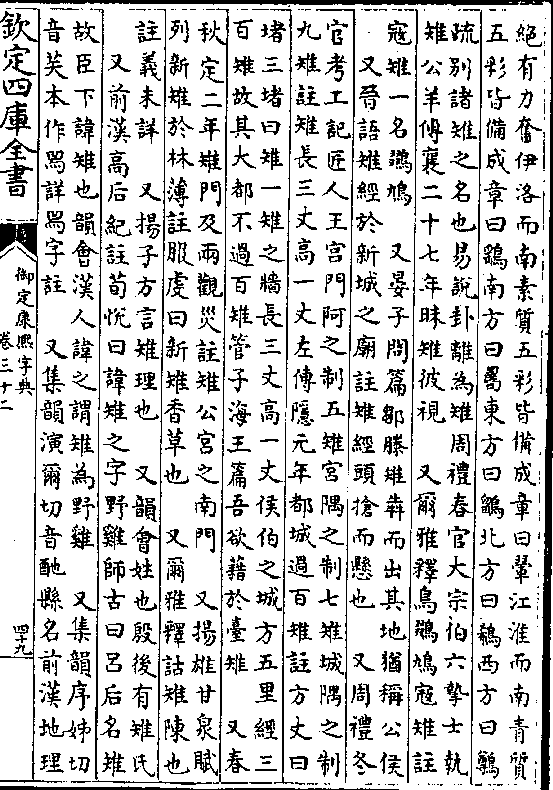 絕有力奮伊洛而南素質五彩皆備成章曰翬江淮而南青質
五彩皆備成章曰鷂南方曰𠷎東方曰鶅北方曰鵗西方曰鷷
疏別諸雉之名也易說卦離為雉周禮春官大宗伯六摯士執
雉公羊傳襄二十七年昧雉彼視　又爾雅釋鳥鶨鳩寇雉註
寇雉一名鶨鳩　又晏子問篇鄒滕雉犇而出其地猶稱公侯
又晉語雉經於新城之廟註雉經頭搶而懸也　又周禮冬
官考工記匠人王宮門阿之制五雉宮隅之制七雉城隅之制
九雉註雉長三丈高一丈左傳隱元年都城過百雉註方丈曰
堵三堵曰雉一雉之牆長三丈高一丈侯伯之城方五里經三
百雉故其大都不過百雉管子海王篇吾欲藉於臺雉　又春
秋定二年雉門及兩觀災註雉公宮之南門　又揚雄甘泉賦
列新雉於林薄註服虔曰新雉香草也　又爾雅釋詁雉陳也
註義未詳　又揚子方言雉理也　又韻會姓也殷後有雉氏
又前漢高后紀註荀悅曰諱雉之字野雞師古曰呂后名雉
故臣下諱雉也韻會漢人諱之謂雉為野雞　又集韻序姊切
音兕本作𤉡詳𤉡字註　又集韻演爾切音酏縣名前漢地理
欽定四庫全書
御定康熙字典
卷三十二
四十九